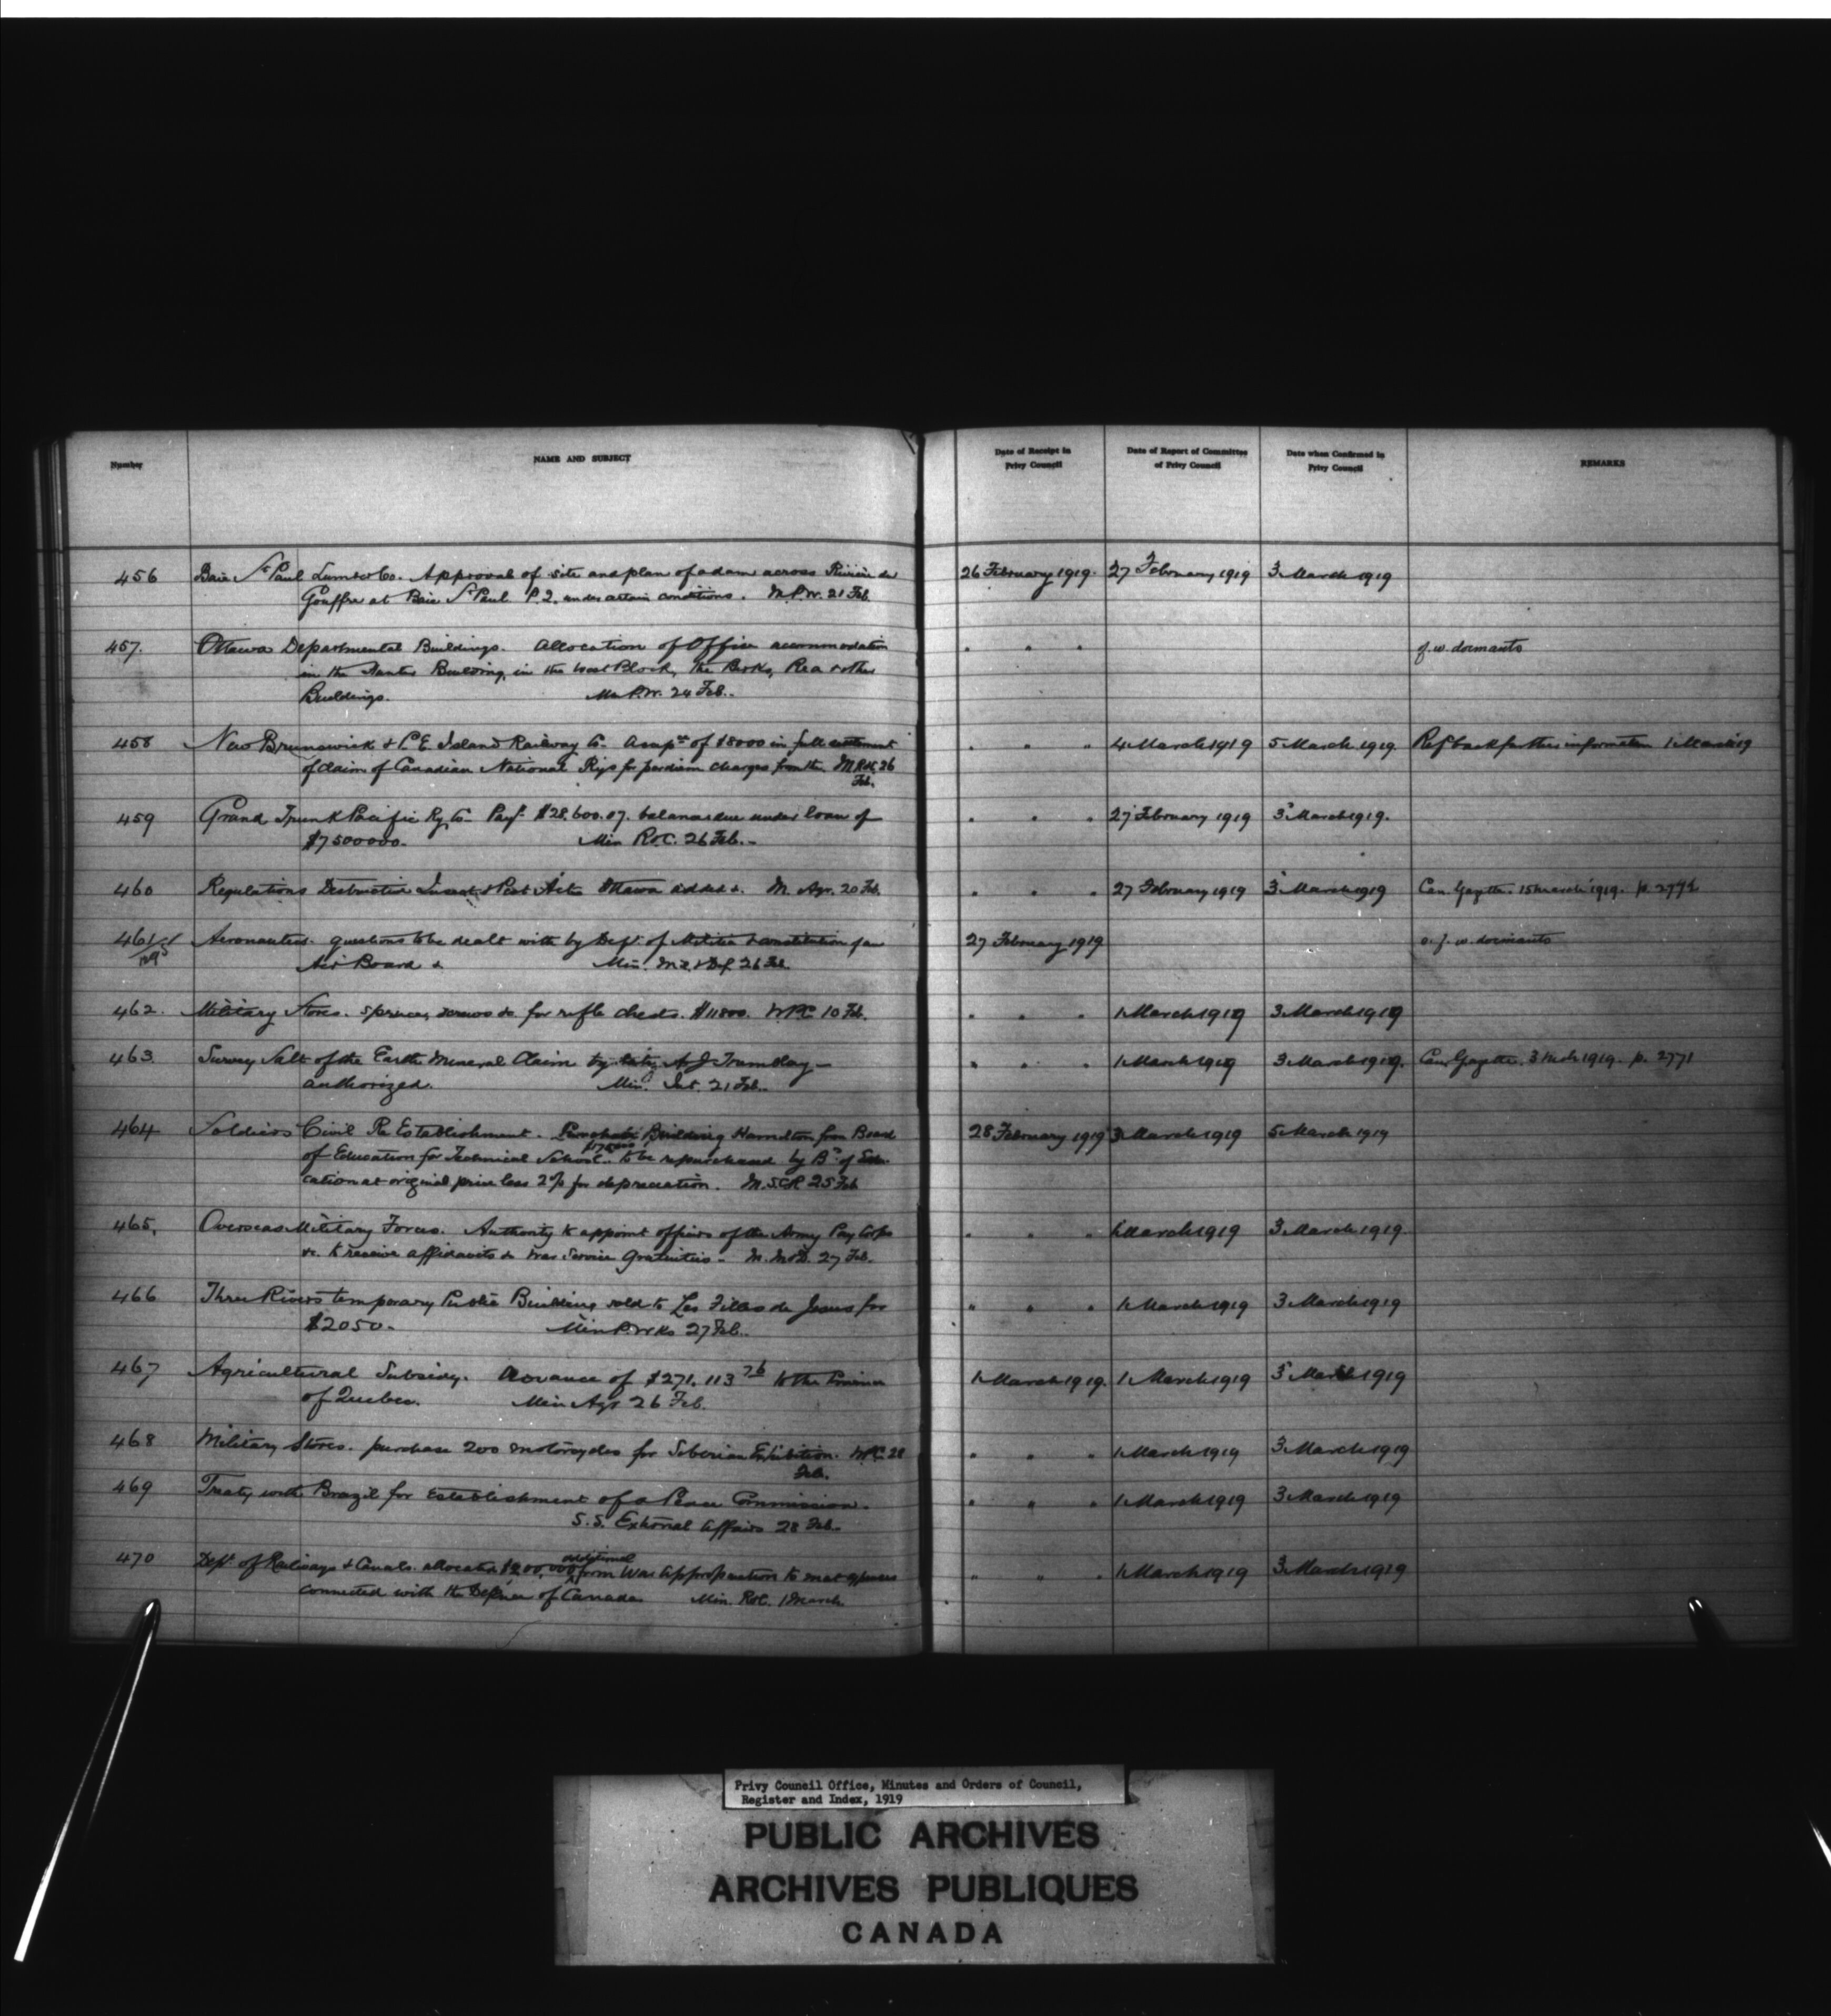 Number
NAME AND SUBJECT
Date of Receipt in
Privy Council
Date of Report of Committee
of Privy Council
Date when Confirmed in
Privy Council
REMARKS
456 Baie St Paul Lumber Co. Approval of site and plan of a dam across Rivière du 26 February 1919. 27 February 1919 3 March 1919
Gouffre at Baie St Paul P.Q. under certain conditions. M.P.W. 21 Feb.
457. Ottawa Departmental Buildings. Allocation of Office accommodation " " " f.w. dormants
in the Hunter Building, in the West Block, the Birks, Rea & other
Buildings. Min P.W. 24 Feb.
458 New Brunswick & P.E. Island Railway Co. of $8000 in full settlement " " " 4 March 1919 5 March 1919 Ref back further information 1 March 19
of claim of Canadian National Rys for perdiem charges from the M.R&C. 26
Feb.
459 Grand Trunk Pacific Ry Co. Payt $28.600.07. balance due under loan of " " " 27 February 1919 3 March 1919.
$7500000. Min R&C. 26 Feb.
460 Regulations Destructive Insect & Pest Act Ottawa added &. M. Agr. 20 Feb. " " " 27 February 1919 3 March 1919 Can. Gazette. 15 March 1919. p.
461 Aeronautics. questions to be dealt with by Dept. of Militia & constitution of an 27 February 1919 o.f.w. dormants
Air Board & Min. M. & Df. 26 Feb.
462. Military Stores. springs, screws &c for rifle chests. $11800. W.P.C. 10 Feb. " " " 1 March 1919 3 March 1919
463. Survey Salt of the Earth Mineral Claim by A J Tremblay " " " 1 March 1919 3 March 1919. Can Gazette. 1919. p. 2771
authorized. Min. Int. 21 Feb.
464 Soldiers Civil Re Establishment. Purchase Building Hamilton from Board 28 February 1919 3 March 1919 5 March 1919
of Education for Technical School to be repurchased by Bd of Edu-
cation at original price less 2% for depreciation. M.S.C.R 25 Feb
465. Overseas Military Forces. Authority to appoint officers of the Army Pay Corps " " " March 1919 3 March 1919.
&c. to receive affidavits &c War Service Gratuities. M. M&D. 27 Feb.
466 Three Rivers temporary Public Building sold to Les Filles de Jesus for " " " 1 March 1919 3 March 1919
$2050. Min P. Wks 27 Feb.
467 Agricultural Subsidy. Advance of $271,113 76 to the Province 1 March 1919. 1 March 1919 3 March 1919
of Quebec. Min Agr 26 Feb.
468 Military Stores. purchase 200 motorcycles for Siberian Expedition. W.P.C. 28 " " " 1 March 1919 3 March 1919
Feb.
469 Treaty with Brazil for establishment of a Peace Commission. " " " 1 March 1919 3 March 1919
S.S. External Affairs 28 Feb.
470 Dept. of Railways & Canals. allocated $200,000 additional from War Appropriation to meet expenses " " " 1 March 1919 3 March 1919
connected with the Defence of Canada Min. R&C. 1 March
Privy Council Office, Minutes and Orders of Council,
Register and Index, 1919
PUBLIC ARCHIVES
ARCHIVES PUBLIQUES
CANADA